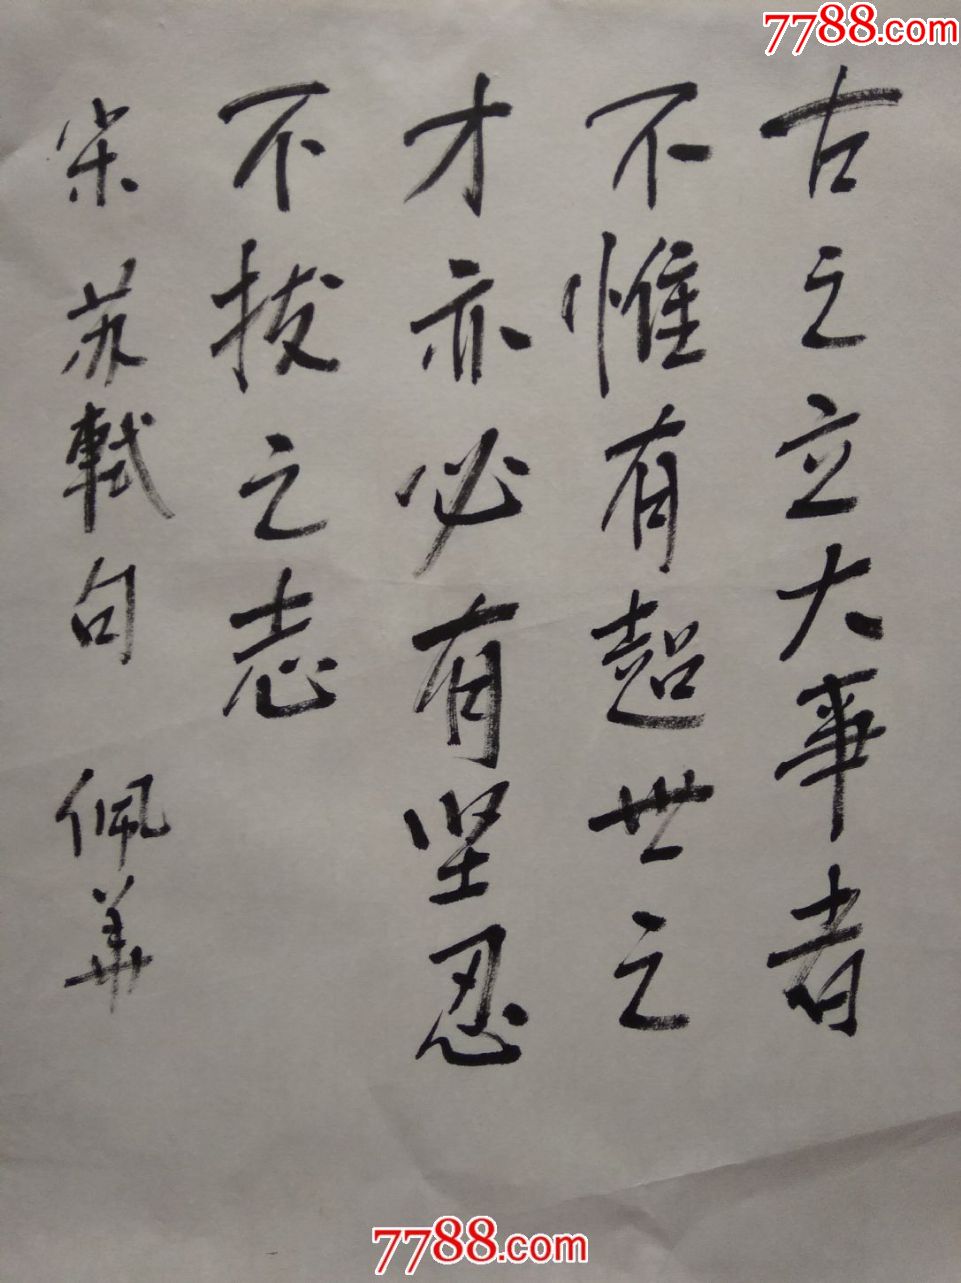 7788.com
古之立大事者
不惟有超世之
才亦必有坚忍
不拔之志
宋苏轼句 佩华
7788.com